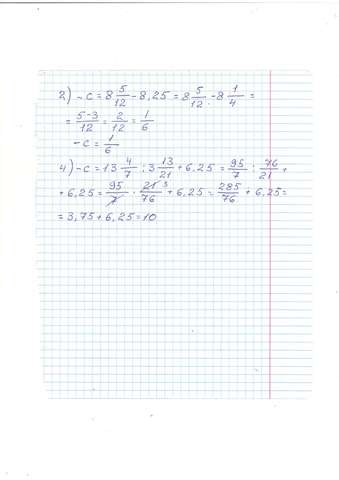 2) -c = 8 5/12 - 8,25 = 8 5/12 - 8 1/4 =
= 5-3/12 = 2/12 = 1/6
-c = 1/6
4) -c = 13 4/7 : 3 13/21 + 6,25 = 95/7 : 76/21 +
+ 6,25 = 95/7 · 21 3/76 + 6,25 = 285/76 + 6,25 =
= 3,75 + 6,25 = 10